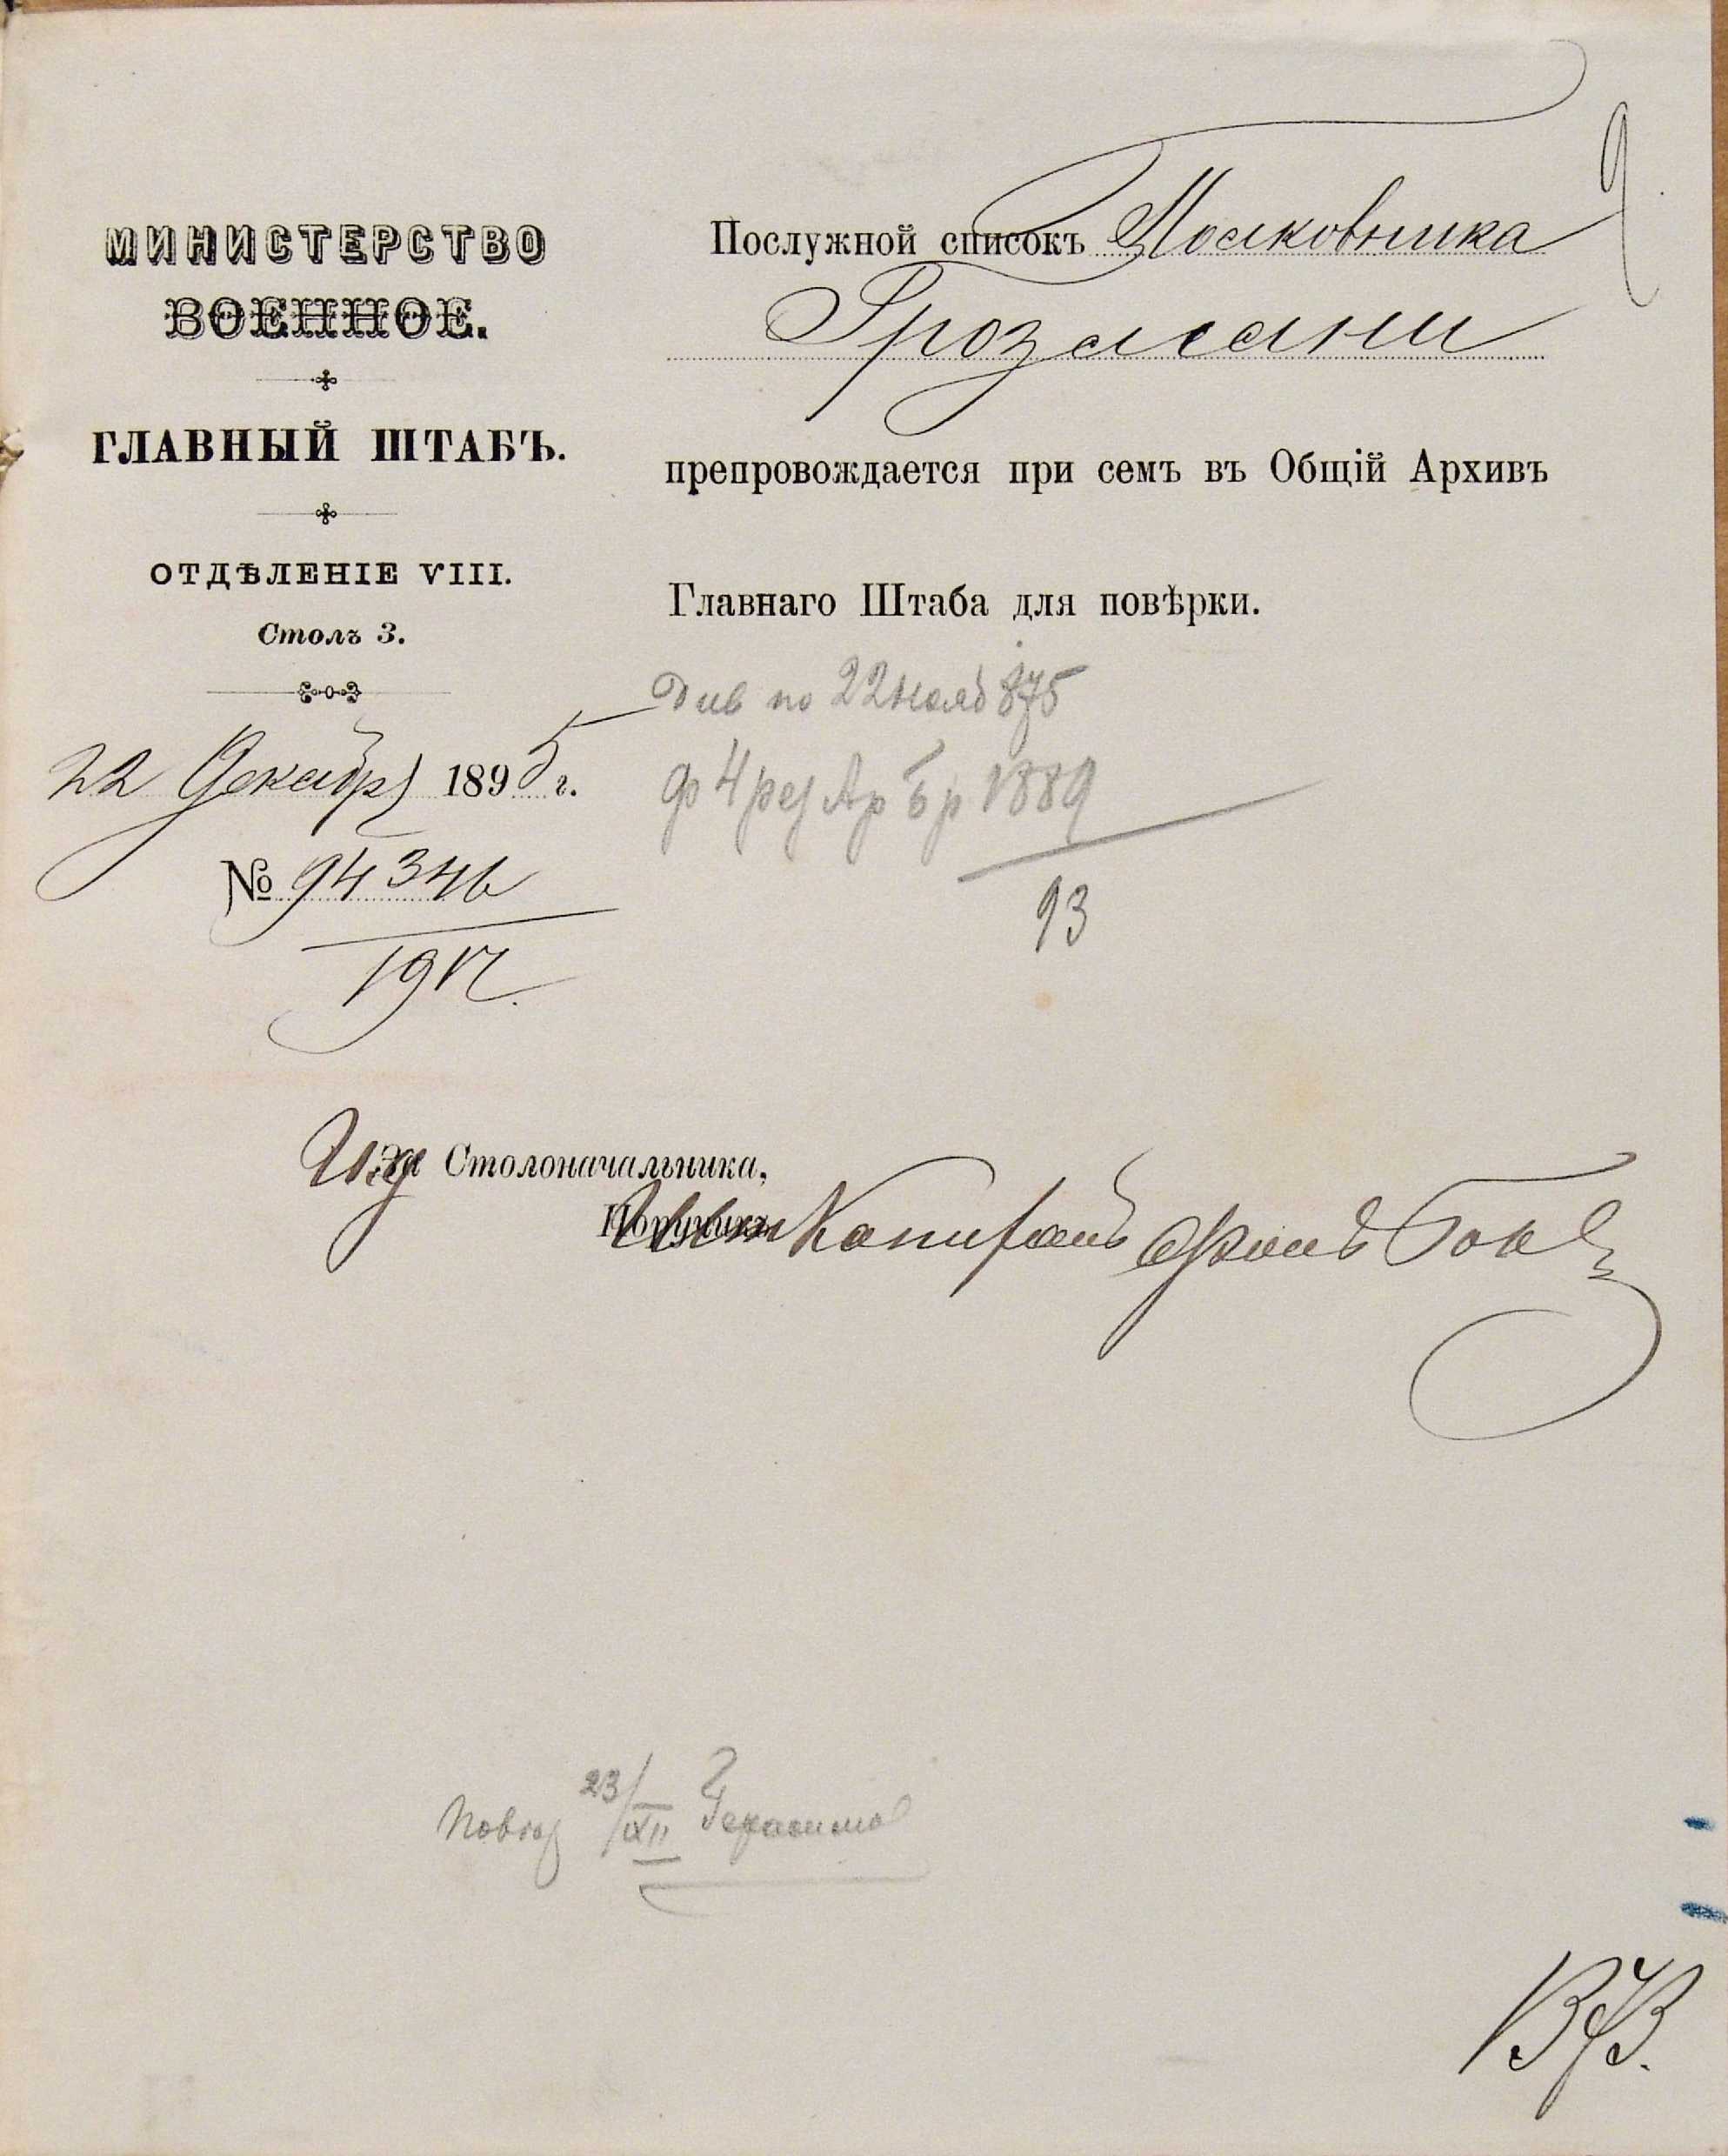 МИНИСТЕРСТВО
ВОЕННОЕ.
ГЛАВНЫЙ ШТАБЪ.
ОТДѢЛЕНІЕ VIII.
Столъ 3.
22 Декабр 1895 г.
№ 94346
Послужной списокъ Полковника
препровождается при семъ въ Общій Архивъ
Главнаго Штаба для повѣрки.
по 22 нояб 875
ф 4 рез Ар Бр 1889
93
Столоначальника,
Капитанъ фонъ
23/XII Герасимов